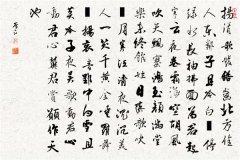 揚清歌發皓齒北方佳
人東鄰子且吟白停
水長袖拂面為君起
寒雲夜卷霜海空胡風
吹天飄塞鴻玉顏滿堂
樂未終館娃日落歌吹
月寒江清夜沉沉美
人一笑千黃金垂羅舞
揚哀音郢中白雪且
莫吟子夜吳歌動君心
動君心冀君賞願作天
池